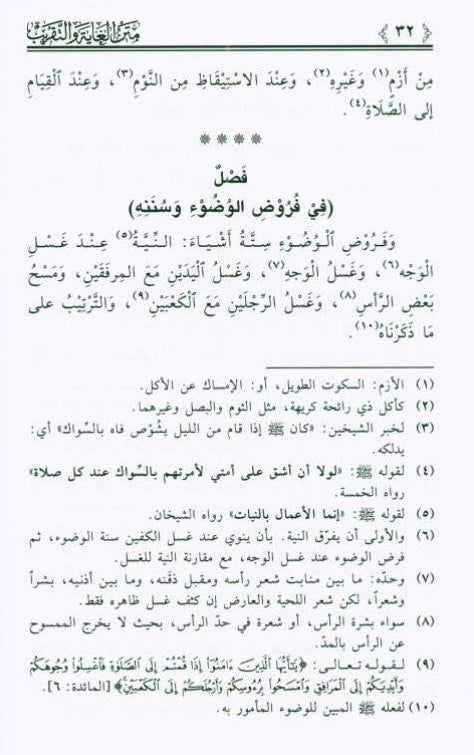 متن الغاية والتقريب
٣٢
مِنْ أَزْمٍ(١) وَغَيْرِهِ(٢)، وَعِنْدَ الاسْتِيْقَاظِ مِن النَّوْمِ(٣)، وَعِنْدَ ٱلْقِيَامِ
إلى الصَّلَاةِ(٤).
* * * *
فَصْلٌ
(فِيْ فُرُوْضِ الوُضُوْءِ وَسُنَنِهِ)
وَفُرُوْضِ ٱلْوُضُوْءِ سِتَّةُ أَشْيَاءَ: النِّيَّةُ(٥) عِنْدَ غَسْلِ
الْوَجْه(٦)، وَغَسْلُ الْوَجهِ(٧)، وَغَسْلُ الْيَدَيْنِ مَعَ المِرفَقَيْنِ، وَمَسْحُ
بَعْضِ الرَّأْسِ(٨)، وَغَسْلُ الرِّجْلَيْنِ مَعَ الْكَعْبَيْنِ(٩)، وَالتَّرْتِيْبُ على
مَا ذَكَرْنَاهُ(١٠).
(١) الأزم: السكوت الطويل، أو: الإمساك عن الأكل.
(٢) كأكل ذي رائحة كريهة، مثل الثوم والبصل وغيرهما.
(٣) لخبر الشيخين: «كان ﷺ إذا قام من الليل يشُوْص فاه بالسِّواك» أي:
يدلكه.
(٤) لقوله ﷺ: «لولا أن أشق على أمتي لأمرتهم بالسِّواك عند كل صلاة»
رواه الخمسة.
(٥) لقوله ﷺ: «إنما الأعمال بالنيات» رواه الشيخان.
(٦) والأولى أن يفرّق النية. بأن ينوي عند غسل الكفين سنة الوضوء، ثم
فرض الوضوء عند غسل الوجه، مع مقارنة النية للغسل.
(٧) وحدّه: ما بين منابت شعر رأسه ومقبل ذقَنه، وما بين أذنيه، بشراً
وشعراً، لكن شعر اللحية والعارض إن كثف غسل ظاهره فقط.
(٨) سواء بشرة الرأس، أو شعرة في حدّ الرأس، بحيث لا يخرج الممسوح
عن الرأس بالمدّ.
(٩) لقوله تعالى: ﴿يَٰٓأَيُّهَا ٱلَّذِينَ ءَامَنُوٓاْ إِذَا قُمۡتُمۡ إِلَى ٱلصَّلَوٰةِ فَٱغۡسِلُواْ وُجُوهَكُمۡ
وَأَيۡدِيَكُمۡ إِلَى ٱلۡمَرَافِقِ وَٱمۡسَحُواْ بِرُءُوسِكُمۡ وَأَرۡجُلَكُمۡ إِلَى ٱلۡكَعۡبَيۡنِ﴾ [المائدة: ٦].
(١٠) لفعله ﷺ المبين للوضوء المأمور به.